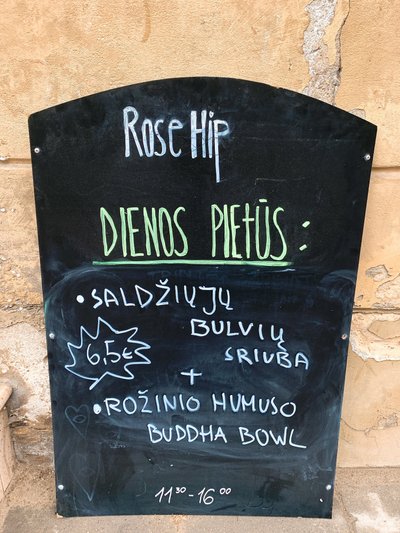 Rose Hip
DIENOS PIETŪS:
• SALDŽIŲJŲ
BULVIŲ
6,5€
SRIUBA
+
• ROŽINIO HUMUSO
BUDDHA BOWL
11³⁰-16⁰⁰